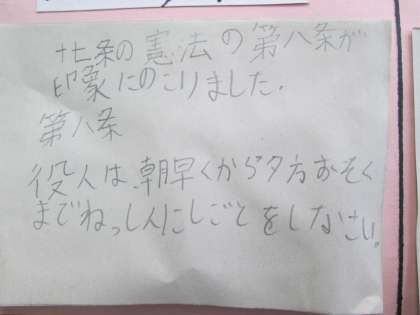 十七条の憲法の第八条が
印象にのこりました。
第八条
役人は、朝早くから夕方おそく
までねっしんにしごとをしなさい。